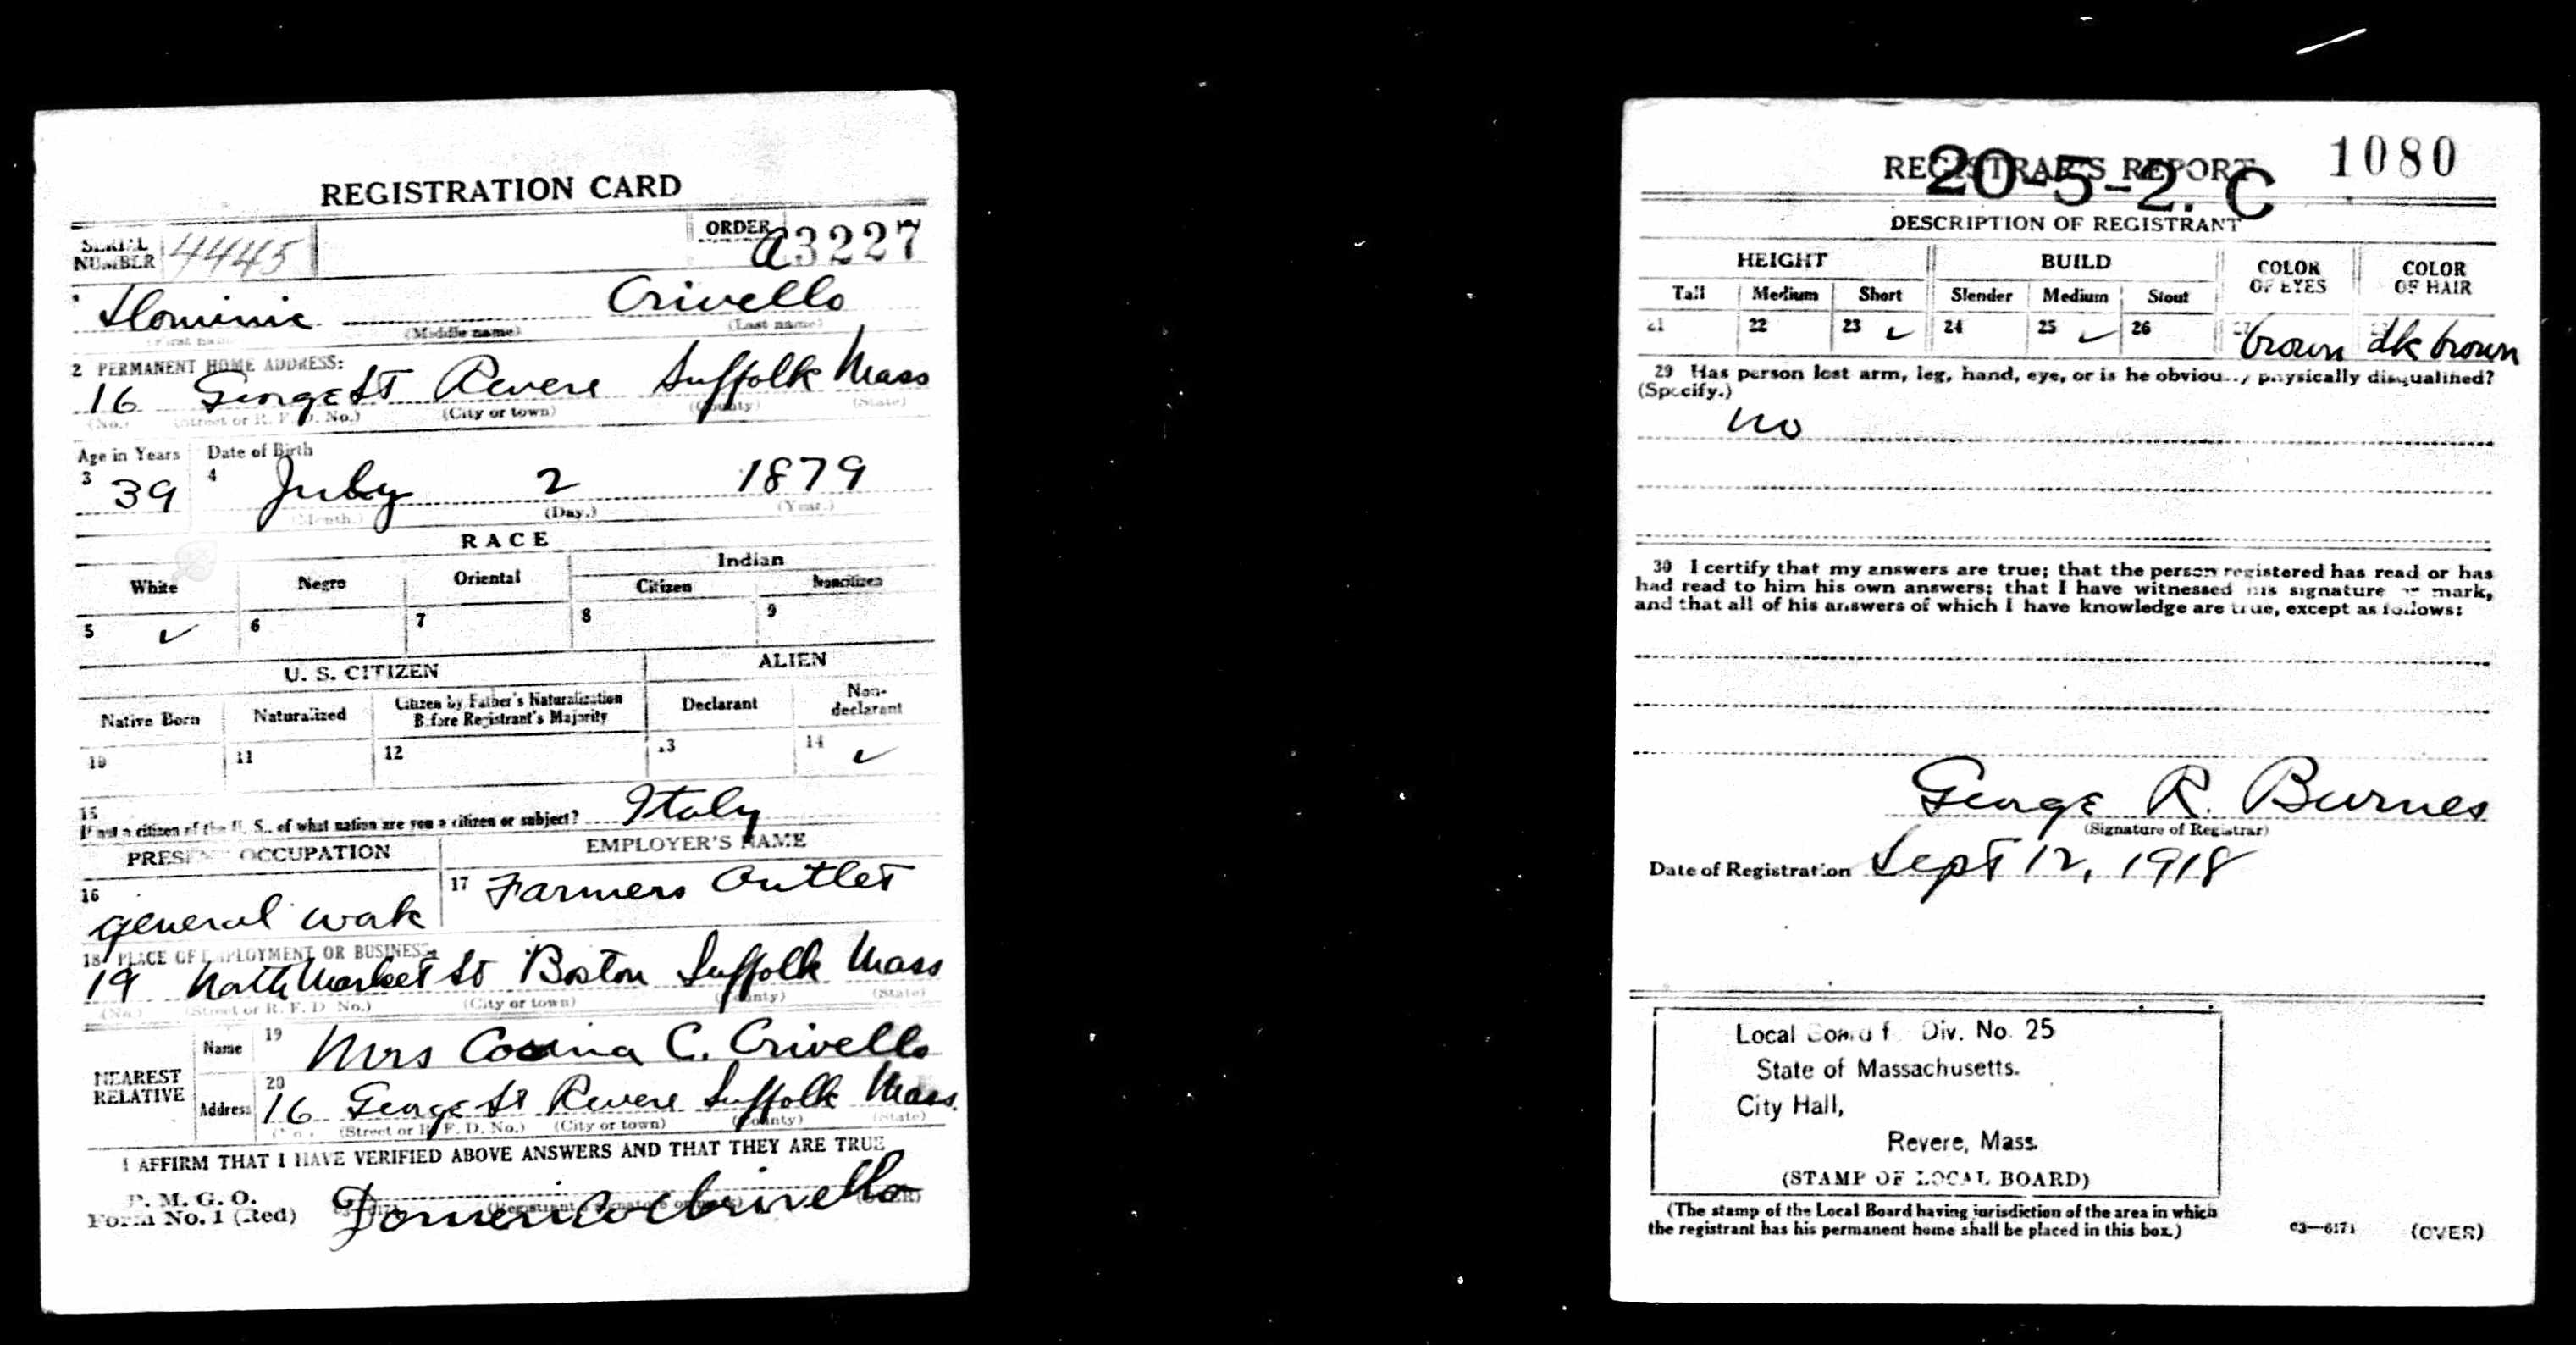 REGISTRATION CARD
SERIAL NUMBER 4445 ORDER a3227
1 Dominic Crivello
(First name) (Middle name) (Last name)
2 PERMANENT HOME ADDRESS:
16 George St Revere Suffolk Mass
(No.) (Street or R. F. D. No.) (City or town) (County) (State)
Age in Years Date of Birth
3 39 4 July 2 1879
(Month.) (Day.) (Year.)
RACE
White Negro Oriental Indian
Citizen Noncitizen
5 ✓ 6 7 8 9
U. S. CITIZEN ALIEN
Native Born Naturalized Citizen by Father's Naturalization Before Registrant's Majority Declarant Non-declarant
10 11 12 13 14 ✓
15 If not a citizen of the U. S., of what nation are you a citizen or subject? Italy
PRESENT OCCUPATION EMPLOYER'S NAME
16 general work 17 Farmers Outlet
18 PLACE OF EMPLOYMENT OR BUSINESS:
19 North Market St Boston Suffolk Mass
(No.) (Street or R. F. D. No.) (City or town) (County) (State)
NEAREST RELATIVE
Name 19 Mrs Cosina C. Crivello
Address 20 16 George St Revere Suffolk Mass.
(No.) (Street or R. F. D. No.) (City or town) (County) (State)
I AFFIRM THAT I HAVE VERIFIED ABOVE ANSWERS AND THAT THEY ARE TRUE
P. M. G. O.
Form No. 1 (Red) Domenico Crivello
(Registrant's signature or mark) (OVER)
REGISTRAR'S REPORT 1080
20-5-2. C
DESCRIPTION OF REGISTRANT
HEIGHT BUILD COLOR OF EYES COLOR OF HAIR
Tall Medium Short Slender Medium Stout
21 22 23 ✓ 24 25 ✓ 26 27 brown dk brown
29 Has person lost arm, leg, hand, eye, or is he obviously physically disqualified?
(Specify.)
no
30 I certify that my answers are true; that the person registered has read or has
had read to him his own answers; that I have witnessed his signature or mark,
and that all of his answers of which I have knowledge are true, except as follows:
George R. Burnes
(Signature of Registrar)
Date of Registration Sept 12, 1918
Local Board f Div. No. 25
State of Massachusetts.
City Hall,
Revere, Mass.
(STAMP OF LOCAL BOARD)
(The stamp of the Local Board having jurisdiction of the area in which
the registrant has his permanent home shall be placed in this box.)
03—6171 (OVER)